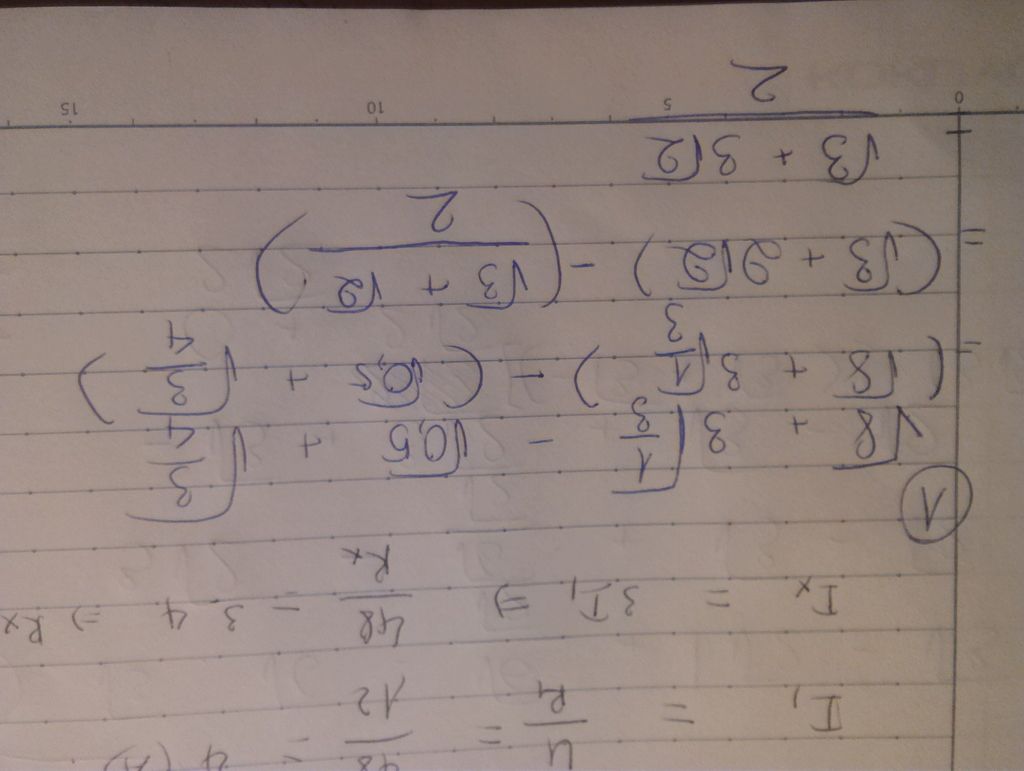 I₁ = U/R₁ = 48/12 = 4 (A)
Iₓ = 3I₁ ⇒ 48/Rₓ = 3 4 ⇒ Rₓ
① √8 + 3√(1/3) - √0,5 + √(3/4)
= (√8 + 3√(1/3)) - (√0,5 + √(3/4))
= (√3 + 2√2) - ((√3 + √2)/2)
= (√3 + 3√2)/2
0 5 10 15